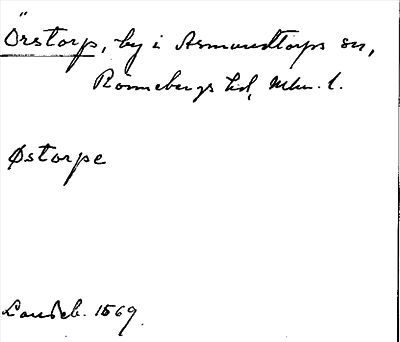 Örstorp, by i Asmundtorps sn,
Rönnebergs hd, Mlm. l.
Østorpe
Landeb. 1569.